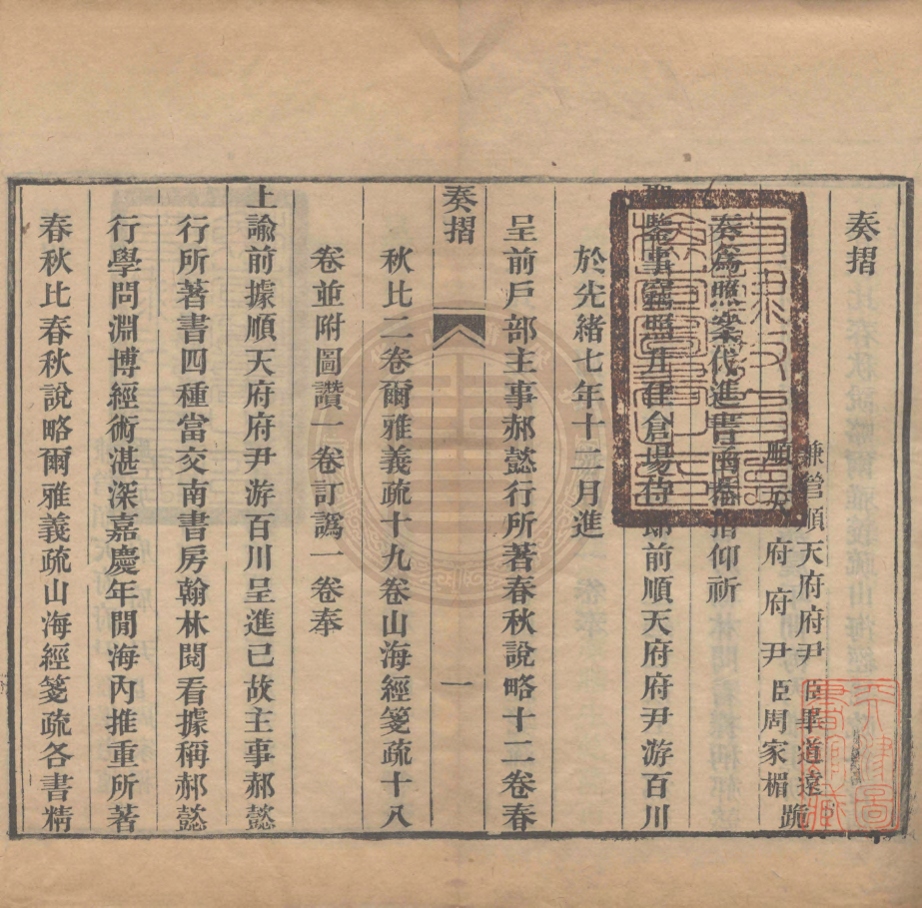 奏摺
兼管順天府府尹臣畢道遠
順天府府尹臣周家楣跪
奏為照案代進書函恭摺仰祈
聖鑒事竊照升任倉場侍郎前順天府府尹游百川
於光緒七年十二月進
呈前戶部主事郝懿行所著春秋說略十二卷春
奏摺
一
秋比二卷爾雅義疏十九卷山海經箋疏十八
卷並附圖讚一卷訂譌一卷奉
上諭前據順天府府尹游百川呈進已故主事郝懿
行所著書四種當交南書房翰林閱看據稱郝懿
行學問淵博經術湛深嘉慶年閒海內推重所著
春秋比春秋說略爾雅義疏山海經箋疏各書精